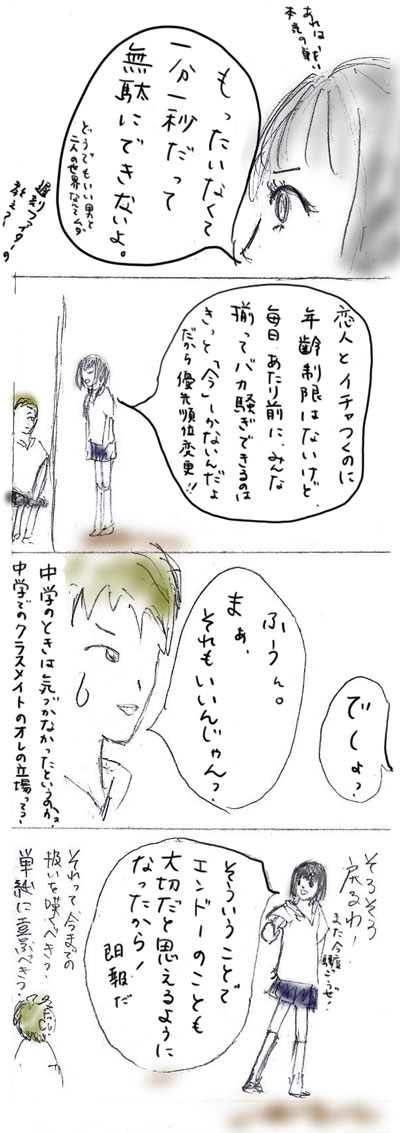 もったいなくて
一分一秒だって
無駄にできないよ。
どうでもいい男と
二人の世界なんてムダ
遅刻ファイターの
教え?
恋人とイチャつくのに
年齢制限はないけど、
毎日、あたり前に、みんな
揃ってバカ騒ぎできるのは
きっと「今」しかないんだよ
だから優先順位変更!!
でしょ?
ふーうん。
まぁ、
それもいいんじゃんっ?
中学のときは気づかなかったというのか?
中学でのクラスメイトのオレの立場って?
そろそろ
戻るわ!
また今度
騒ごうぜ!
そういうことで
エンドーのことも
大切だと思えるように
なったから!
朗報だ
それって今までの
扱いを嘆くべき?
単純に喜ぶべき?